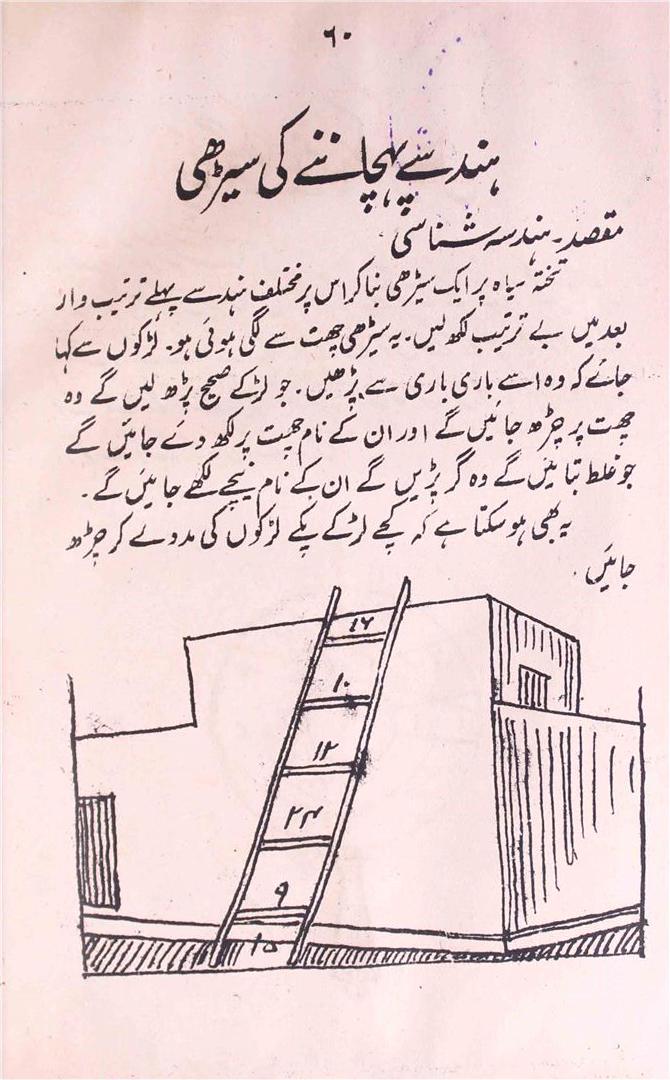 ۶۰
ہندسے پہچاننے کی سیڑھی
مقصد۔ ہندسہ شناسی
تختۂ سیاہ پر ایک سیڑھی بنا کر اس پر مختلف ہندسے پہلے ترتیب وار
بعد میں بے ترتیب لکھ لیں۔ یہ سیڑھی چھت سے لگی ہوئی ہو۔ لڑکوں سے کہا
جائے کہ وہ اسے باری باری سے پڑھیں۔ جو لڑکے صحیح پڑھ لیں گے وہ
چھت پر چڑھ جائیں گے اور ان کے نام چھت پر لکھ دئے جائیں گے
جو غلط بتائیں گے وہ گر پڑیں گے ان کے نام نیچے لکھے جائیں گے۔
یہ بھی ہو سکتا ہے کہ کچے لڑکے پکے لڑکوں کی مدد لے کر چڑھ
جائیں۔
۴۶
۱۰
۱۲
۲۴
۹
۱۵